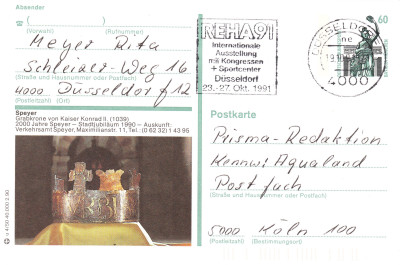 Absender
(Vorwahl) (Rufnummer)
Meyer Rita
(Straße und Hausnummer oder Postfach)
4000 Düsseldorf 12
(Postleitzahl) (Ort)
Speyer
Grabkrone von Kaiser Konrad II. (1039)
2000 Jahre Speyer – Stadtjubiläum 1990 – Auskunft:
Verkehrsamt Speyer, Maximilianstr. 11, Tel. (0 62 32) 1 43 95
REHA 91
Internationale
Ausstellung
mit Kongressen
+ Sportcenter
Düsseldorf
23.-27. Okt. 1991
DÜSSELDORF
4000
60
Postkarte
Prisma-Redaktion
Kennw: Aqualand
Postfach
(Straße und Hausnummer oder Postfach)
5000 Köln 100
(Postleitzahl) (Bestimmungsort)